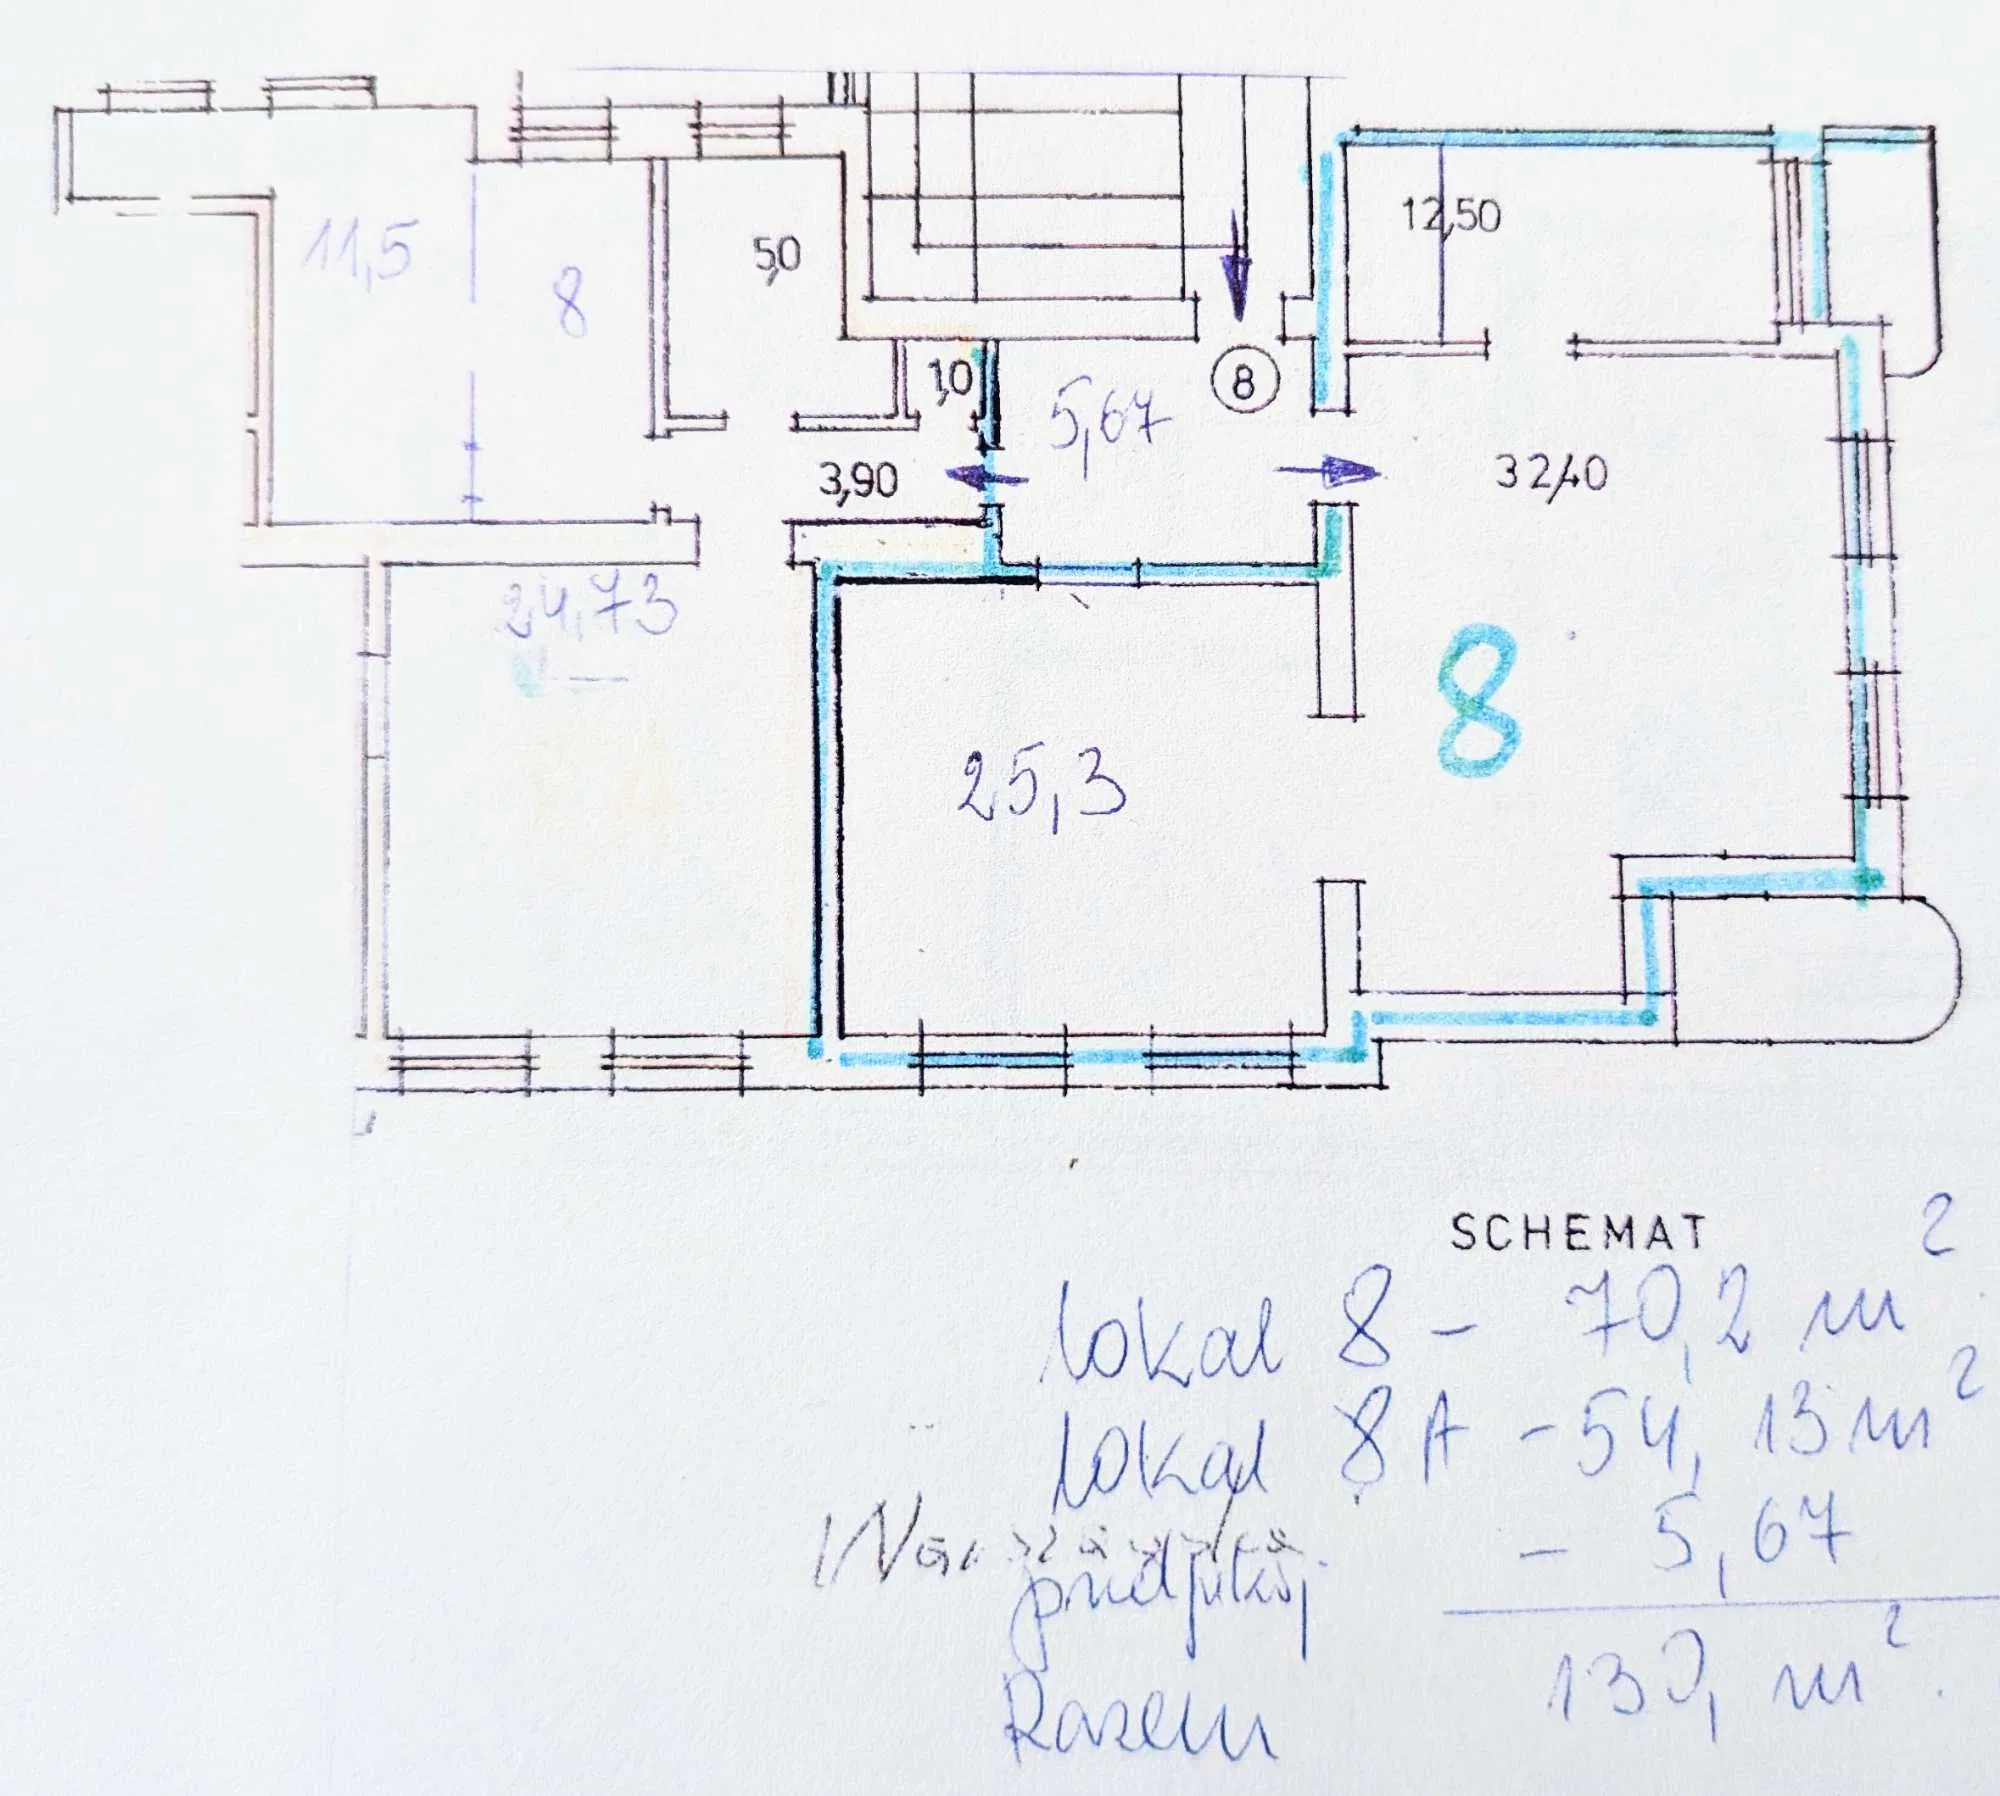 12,50
11,5
5,0
8
1,0
8
5,67
3,90
32,40
24,73
8
25,3
SCHEMAT
lokal 8 - 70,2 m²
lokal 8A - 54,13 m²
- 5,67
Razem 130, m²